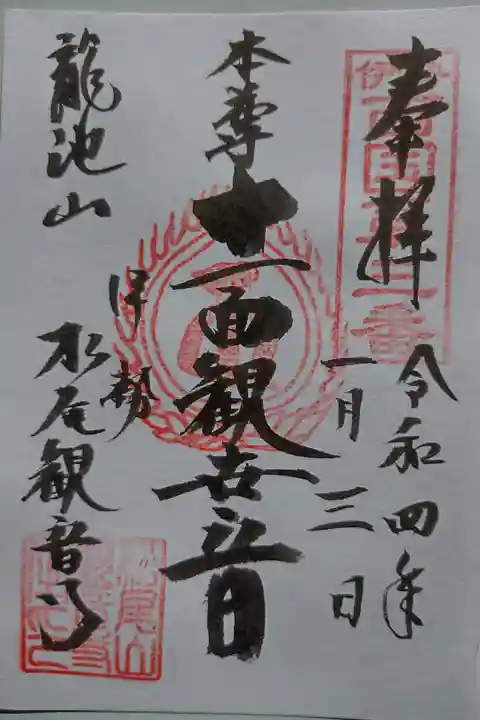 奉拝
令和四年
一月三日
本尊
十一面観世音
龍池山
伊勢
松尾観音寺